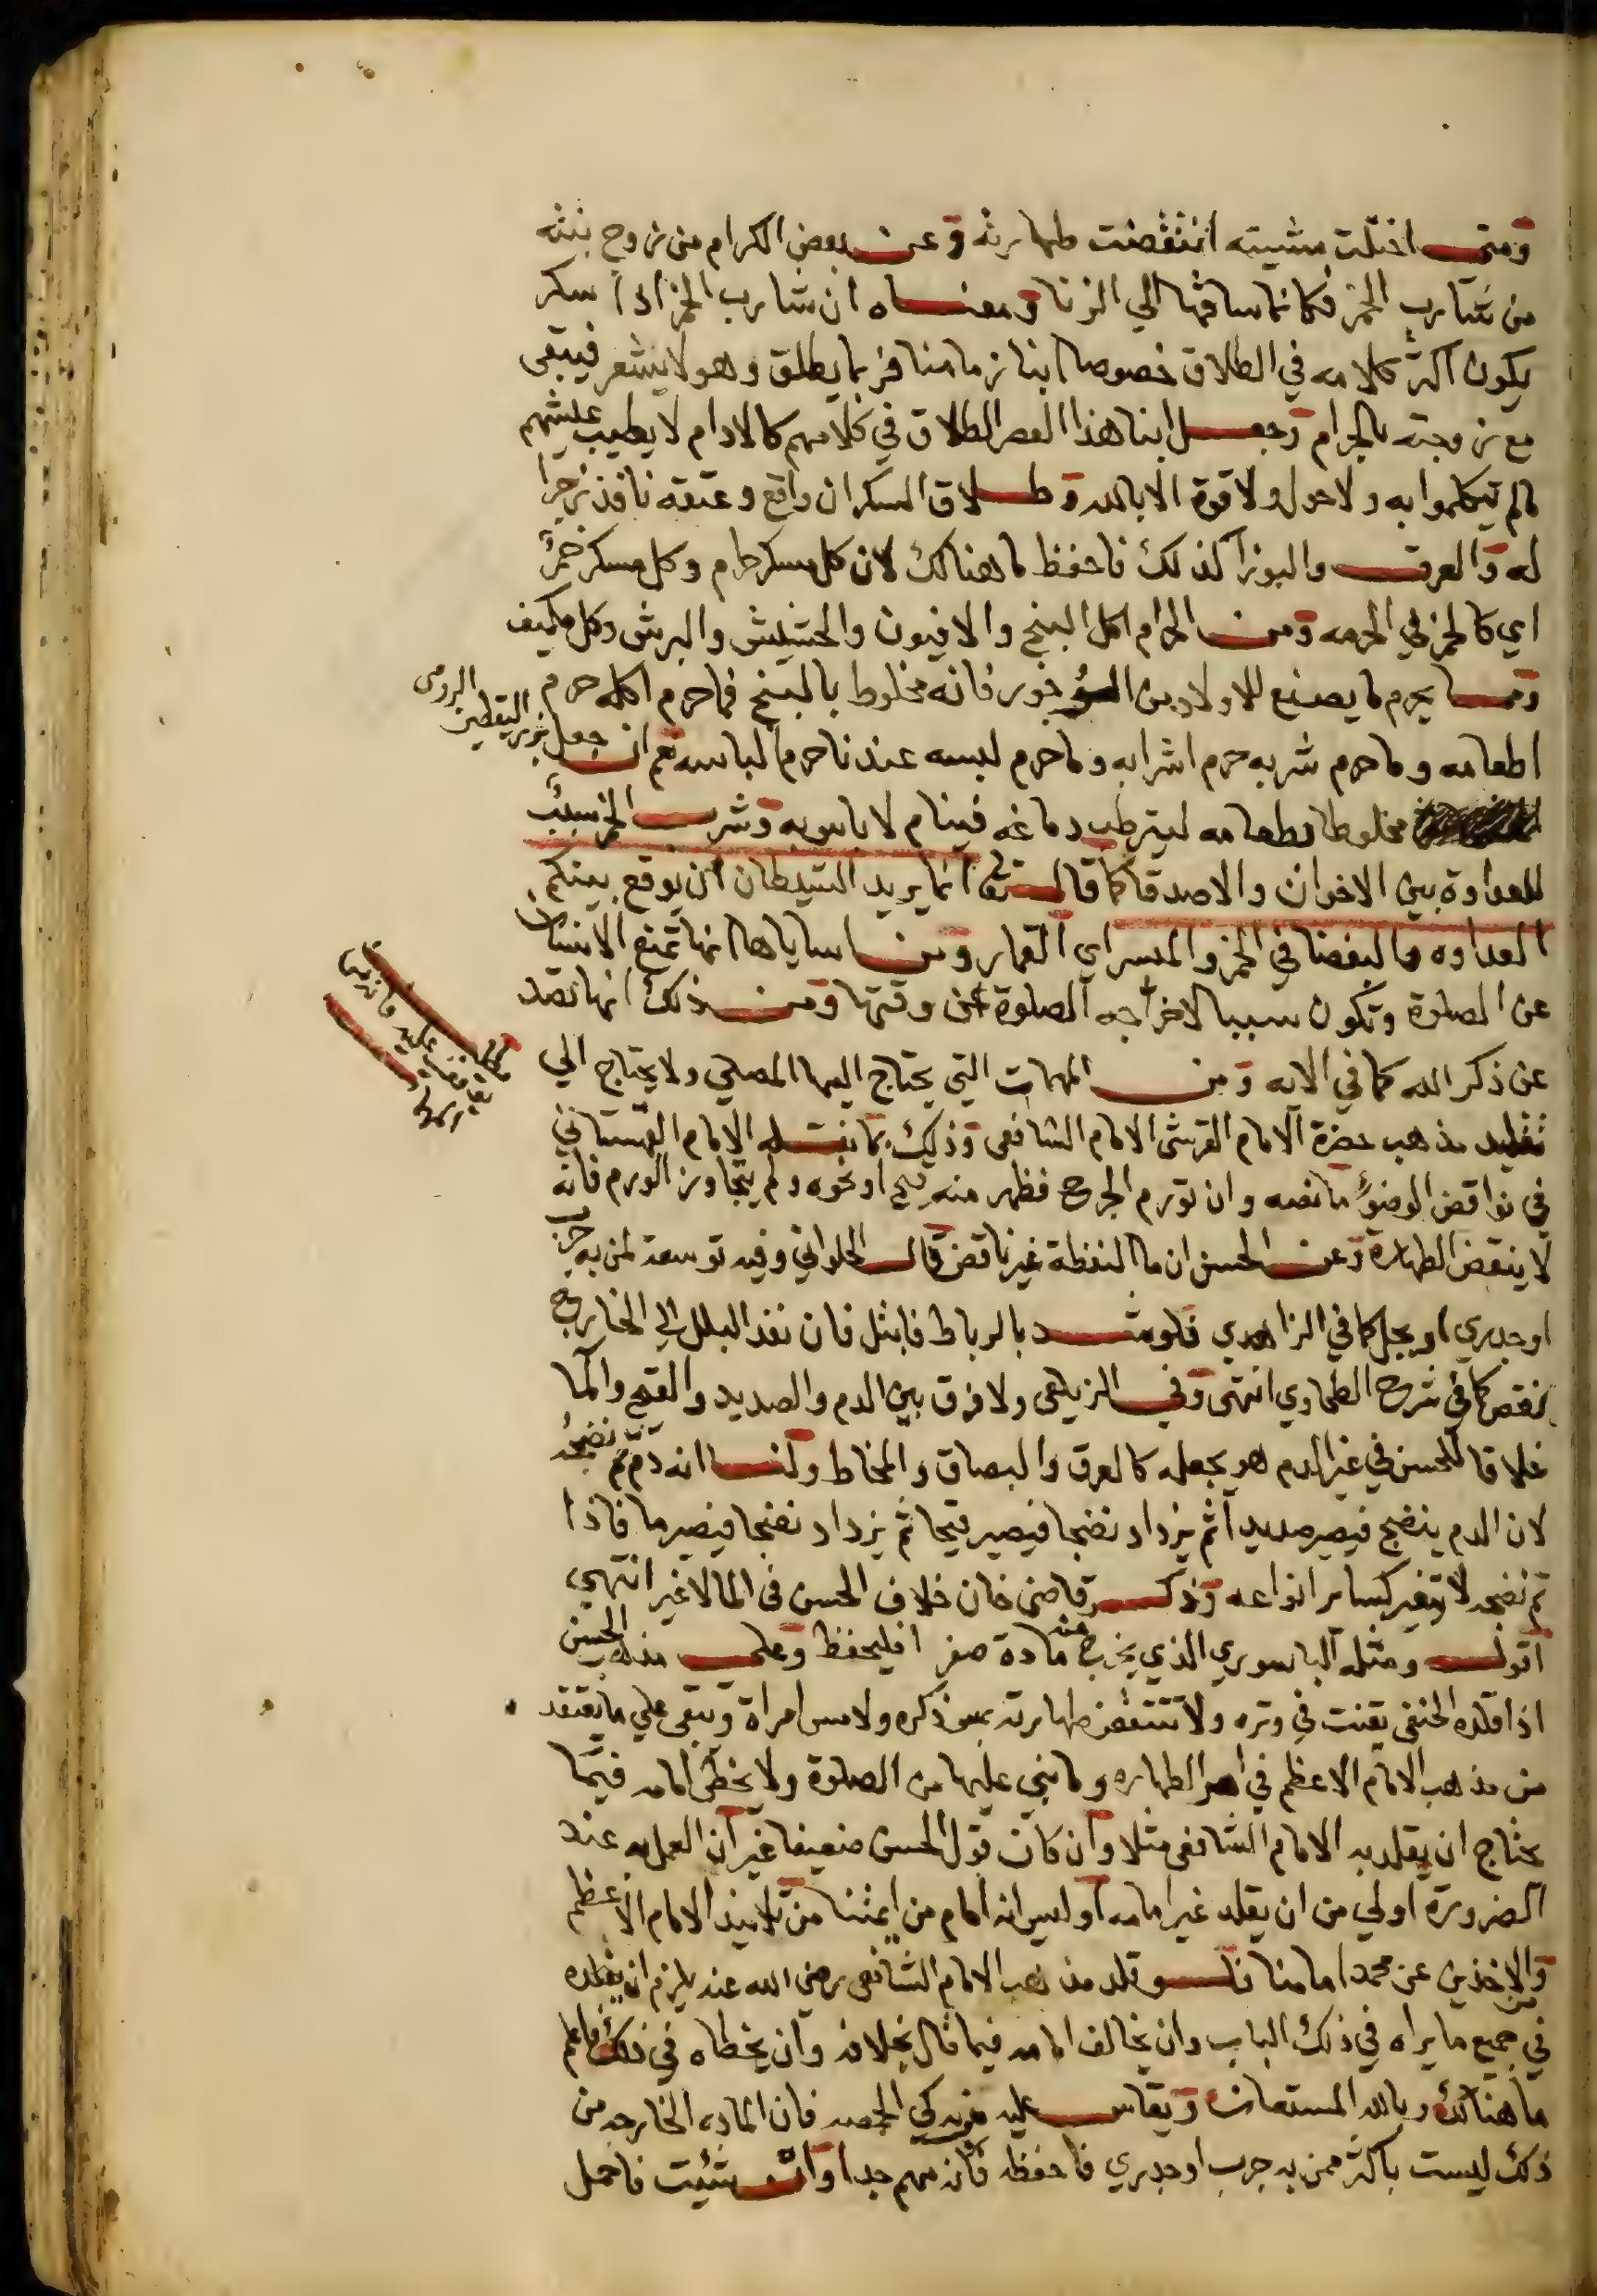 ومتى اختلت مشيته انتقضت طهارته وعن بعض الكرام من زوج بنته
من شارب الخمر فكانما ساقها الي الزنا ومعناه ان شارب الخمر اذا سكر
يكون اكثر كلامه في الطلاق خصوصا ابنا زماننا فربما يطلق وهو لا يشعر فيبقى
مع زوجته بالحرام وجعل ابنا هذا العصر الطلاق في كلامهم كالادام لا يطيب عيشهم
مالم يتكلموا به ولا حول ولا قوة الا بالله وطلاق السكران واقع وعتقه نافذ زجرا
له والعرق والبوزا كذلك فاحفظ ما هنالك لان كل مسكر حرام وكل مسكر خمر
اي كالخمر في الحرمه ومن الحرام اكل البنج والافيون والحشيش والبرش وكل مكيف
ومما يحرم ما يصنع للاولاد من فانه مخلوط بالبنج فما حرم اكله حرم
اطعامه وما حرم شربه حرم اشرابه وما حرم لبسه عندنا حرم الباسه نعم ان جعل بزر اليقطين الرومى
مخلوطا بطعامه ليترطب دماغه فينام لا باس به وشرب الخمر سبب
للعداوة بين الاخوان والاصدقا كما قال تعا انما يريد الشيطان ان يوقع بينكم
العداوه والبغضا في الخمر والميسر اي القمار ومن اساياها انها تمنع الانسان
عن الصلوة وتكون سببا لاخراجه الصلوة عن وقتها ومن ذلك انها تصد
عن ذكر الله كما في الايه ومن المهمات التي يحتاج اليها المصلي ولا يحتاج الي
تقليد مذهب حضرة الامام القرشى الامام الشافعى وذلك بما نقله الامام القهستاني
في نواقض الوضوء ما نصه وان تورم الجرح فظهر منه قيح او نحوه ولم يتجاوز الورم فانه
لا ينقض الطهارة وعن الحسن ان ما النفطة غير ناقض قال الحلواني وفيه توسعة لمن به جرب
او جدري او مجل كما في الزاهدي فلو شد بالرباط فابتل فان نفذ البلل الي الخارج
نقض كما في شرح الطحاوي انتهى وفي الزيلعى ولا فرق بين الدم والصديد والقيح والما
خلافا للحسن في غير الدم هو يجعله كالعرق والبصاق والمخاط ولنا انه دم تم نضجه
لان الدم ينضج فيصير صديدا ثم يزداد نضجا فيصير قيحا ثم يزداد نضجا فيصير ما فاذا
تم نضجه لا يتغير كساير انواعه وذكر قاضى خان خلاف الحسن في الما لا غير انتهي
اقول ومثله الباسوري الذي يخرج منه مادة صفرا فليحفظ وعلى مذهب الحسن
اذا قلده الحنفى يقنت في وتره ولا تنتقض طهارته بمس ذكره ولا مس امراة ويبقى علي ما يعتقد
من مذهب الامام الاعظم في امر الطهاره وما بني عليها من الصلوة ولا يخطي امامه فيما
يحتاج ان يقلد به الامام الشافعى مثلا وان كان قول الحسن ضعيفا غير ان العمل به عند
الضرورة اولي من ان يقلد غير امامه اوليس انه امام من ايمتنا من تلاميذ الامام الاعظم
والاخذين عن محمد امامنا فلو قلد مذهب الامام الشافعى رضى الله عنه يلزم ان يقلده
في جميع ما يراه في ذلك الباب وان يخالف امامه فيما قال بخلافه وان يخطاه في ذلك فاعلم
ما هنالك وبالله المستعان ويقاس عليه كي الحمصه فان الماده الخارجه من
ذلك ليست باكثر ممن به جرب او جدري فاحفظه فانه مهم جدا وان شئت فاحمل